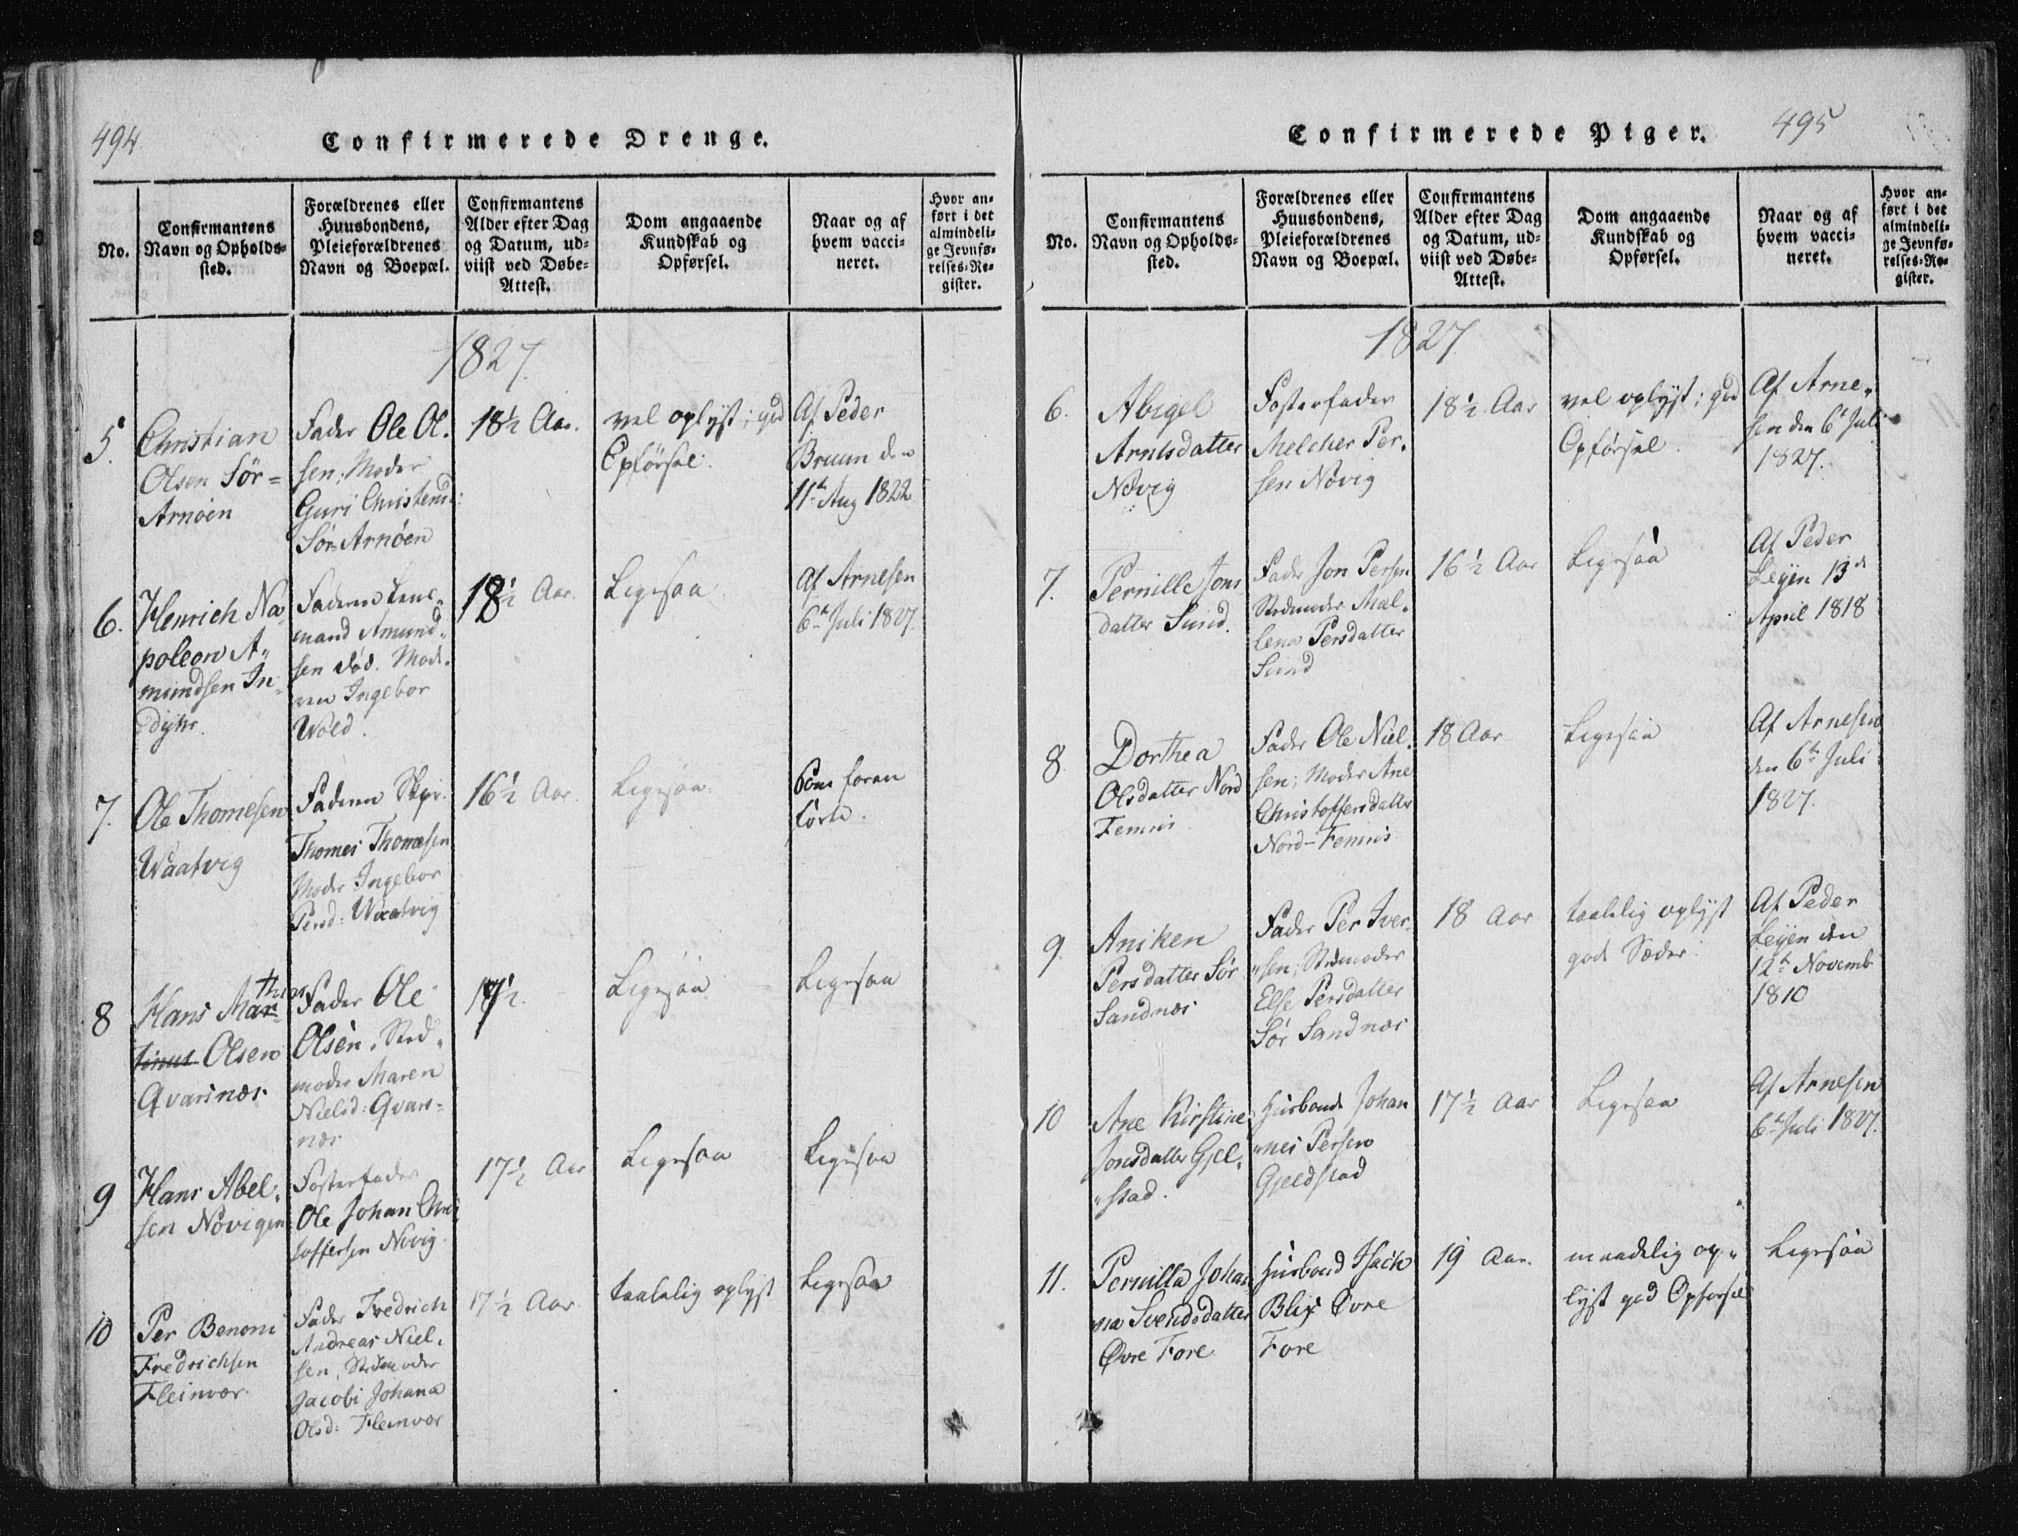 494
Confirmerede Drenge.
No.
Confirmantens
Navn og Opholds-
sted.
Forældrenes eller
Huusbondens,
Pleieforældrenes
Navn og Boepæl.
Confirmantens
Alder efter Dag
og Datum, ud-
viist ved Døbe-
Attest.
Dom angaaende
Kundskab og
Opførsel.
Naar og af
hvem vacci-
neret.
Hvor an-
ført i det
almindeli-
ge Jevnfø-
relses-Re-
gister.
1827.
5.
Christian
Olsen Sør=
Arnøen
Fader Ole Ol-
sen; Moder
Guri Christensd:
Sør-Arnøen
18½ Aar.
vel oplyst; god
Opførsel.
Af Peder
Bruun den
11te Aug 1822
6.
Henrich Na-
poleon A-
mundsen In-
dyhr.
Faderen Lens-
mand Amund-
sen død. Mod-
ren Ingebor
Wold.
18½ Aar.
Ligesaa
Af Arnesen
6te Juli 1827.
7.
Ole Thomesen
Waatvig
Faderen Skpr.
Thomes Thomesen
Moder Ingebor
Persd: Waatvig
16½ Aar.
Ligesaa.
Som foran
førte.
8
Hans Mar-
thias
tinus Olsen
Qvarsnæs
Fader Ole
Olsen, Sted-
moder Maren
Nielsd: Qvars-
næs
17½.
Ligesaa
Ligesaa
9
Hans Abel-
sen Novigen
Fosterfader
Ole Johan Chri-
stoffersen Novig.
17½ Aar
Ligesaa
Ligesaa
10
Per Benoni
Fredrichsen
Fleinvær.
Fader Fredrich
Andreas Niel-
sen, Stedmoder
Jacobi Johana
Olsd: Fleinvær
17½ Aar
taalelig oplyst
Ligesaa
Confirmerede Piger.
495
No.
Confirmantens
Navn og Opholds-
sted.
Forældrenes eller
Huusbondens,
Pleieforældrenes
Navn og Boepæl.
Confirmantens
Alder efter Dag
og Datum, ud-
viist ved Døbe-
Attest.
Dom angaaende
Kundskab og
Opførsel.
Naar og af
hvem vacci-
neret.
Hvor an-
ført i det
almindeli-
ge Jevnfø-
relses-Re-
gister.
1827.
6.
Abigel
Arntsdatter
Novig
Fosterfader
Melcher Per-
sen Novig
18½ Aar
vel oplyst; god
Opførsel.
Af Arne-
sen den 6te Juli
1827.
7.
Pernille Jons
datter Sund.
Fader Jon Persen
Stedmoder Mal-
lena Persdatter
Sund
16½ Aar
Ligesaa
Af Peder
Leyen 13de
April 1818
8
Dorthea
Olsdatter Nord
Femris
Fader Ole Niel-
sen; Moder Ane
Christoffersdatter
Nord-Femris.
18 Aar
Ligesaa
Af Arnesen
den 6te Juli
1827.
9.
Aniken
Persdatter Sør
Sandnæs
Fader Per Iver-
sen; Stedmoder
Else Persdatter
Sør Sandnæs
18 Aar
taalelig oplyst
gode Sæder.
Af Peder
Leyen den
12te Novemb
1810
10
Ane Kirstine
Jonsdatter Gjel-
stad.
Husbonde Johan
nes Persen
Gjeldstad
17½ Aar
Ligesaa
Af Arnesen
6te Juli 1827.
11.
Pernilla Johan
na Svendsdatter
Øvre Fore
Husbond Isach
Blix Øvre
Fore
19 Aar.
maadelig op-
lyst god Opførsel
Ligesaa